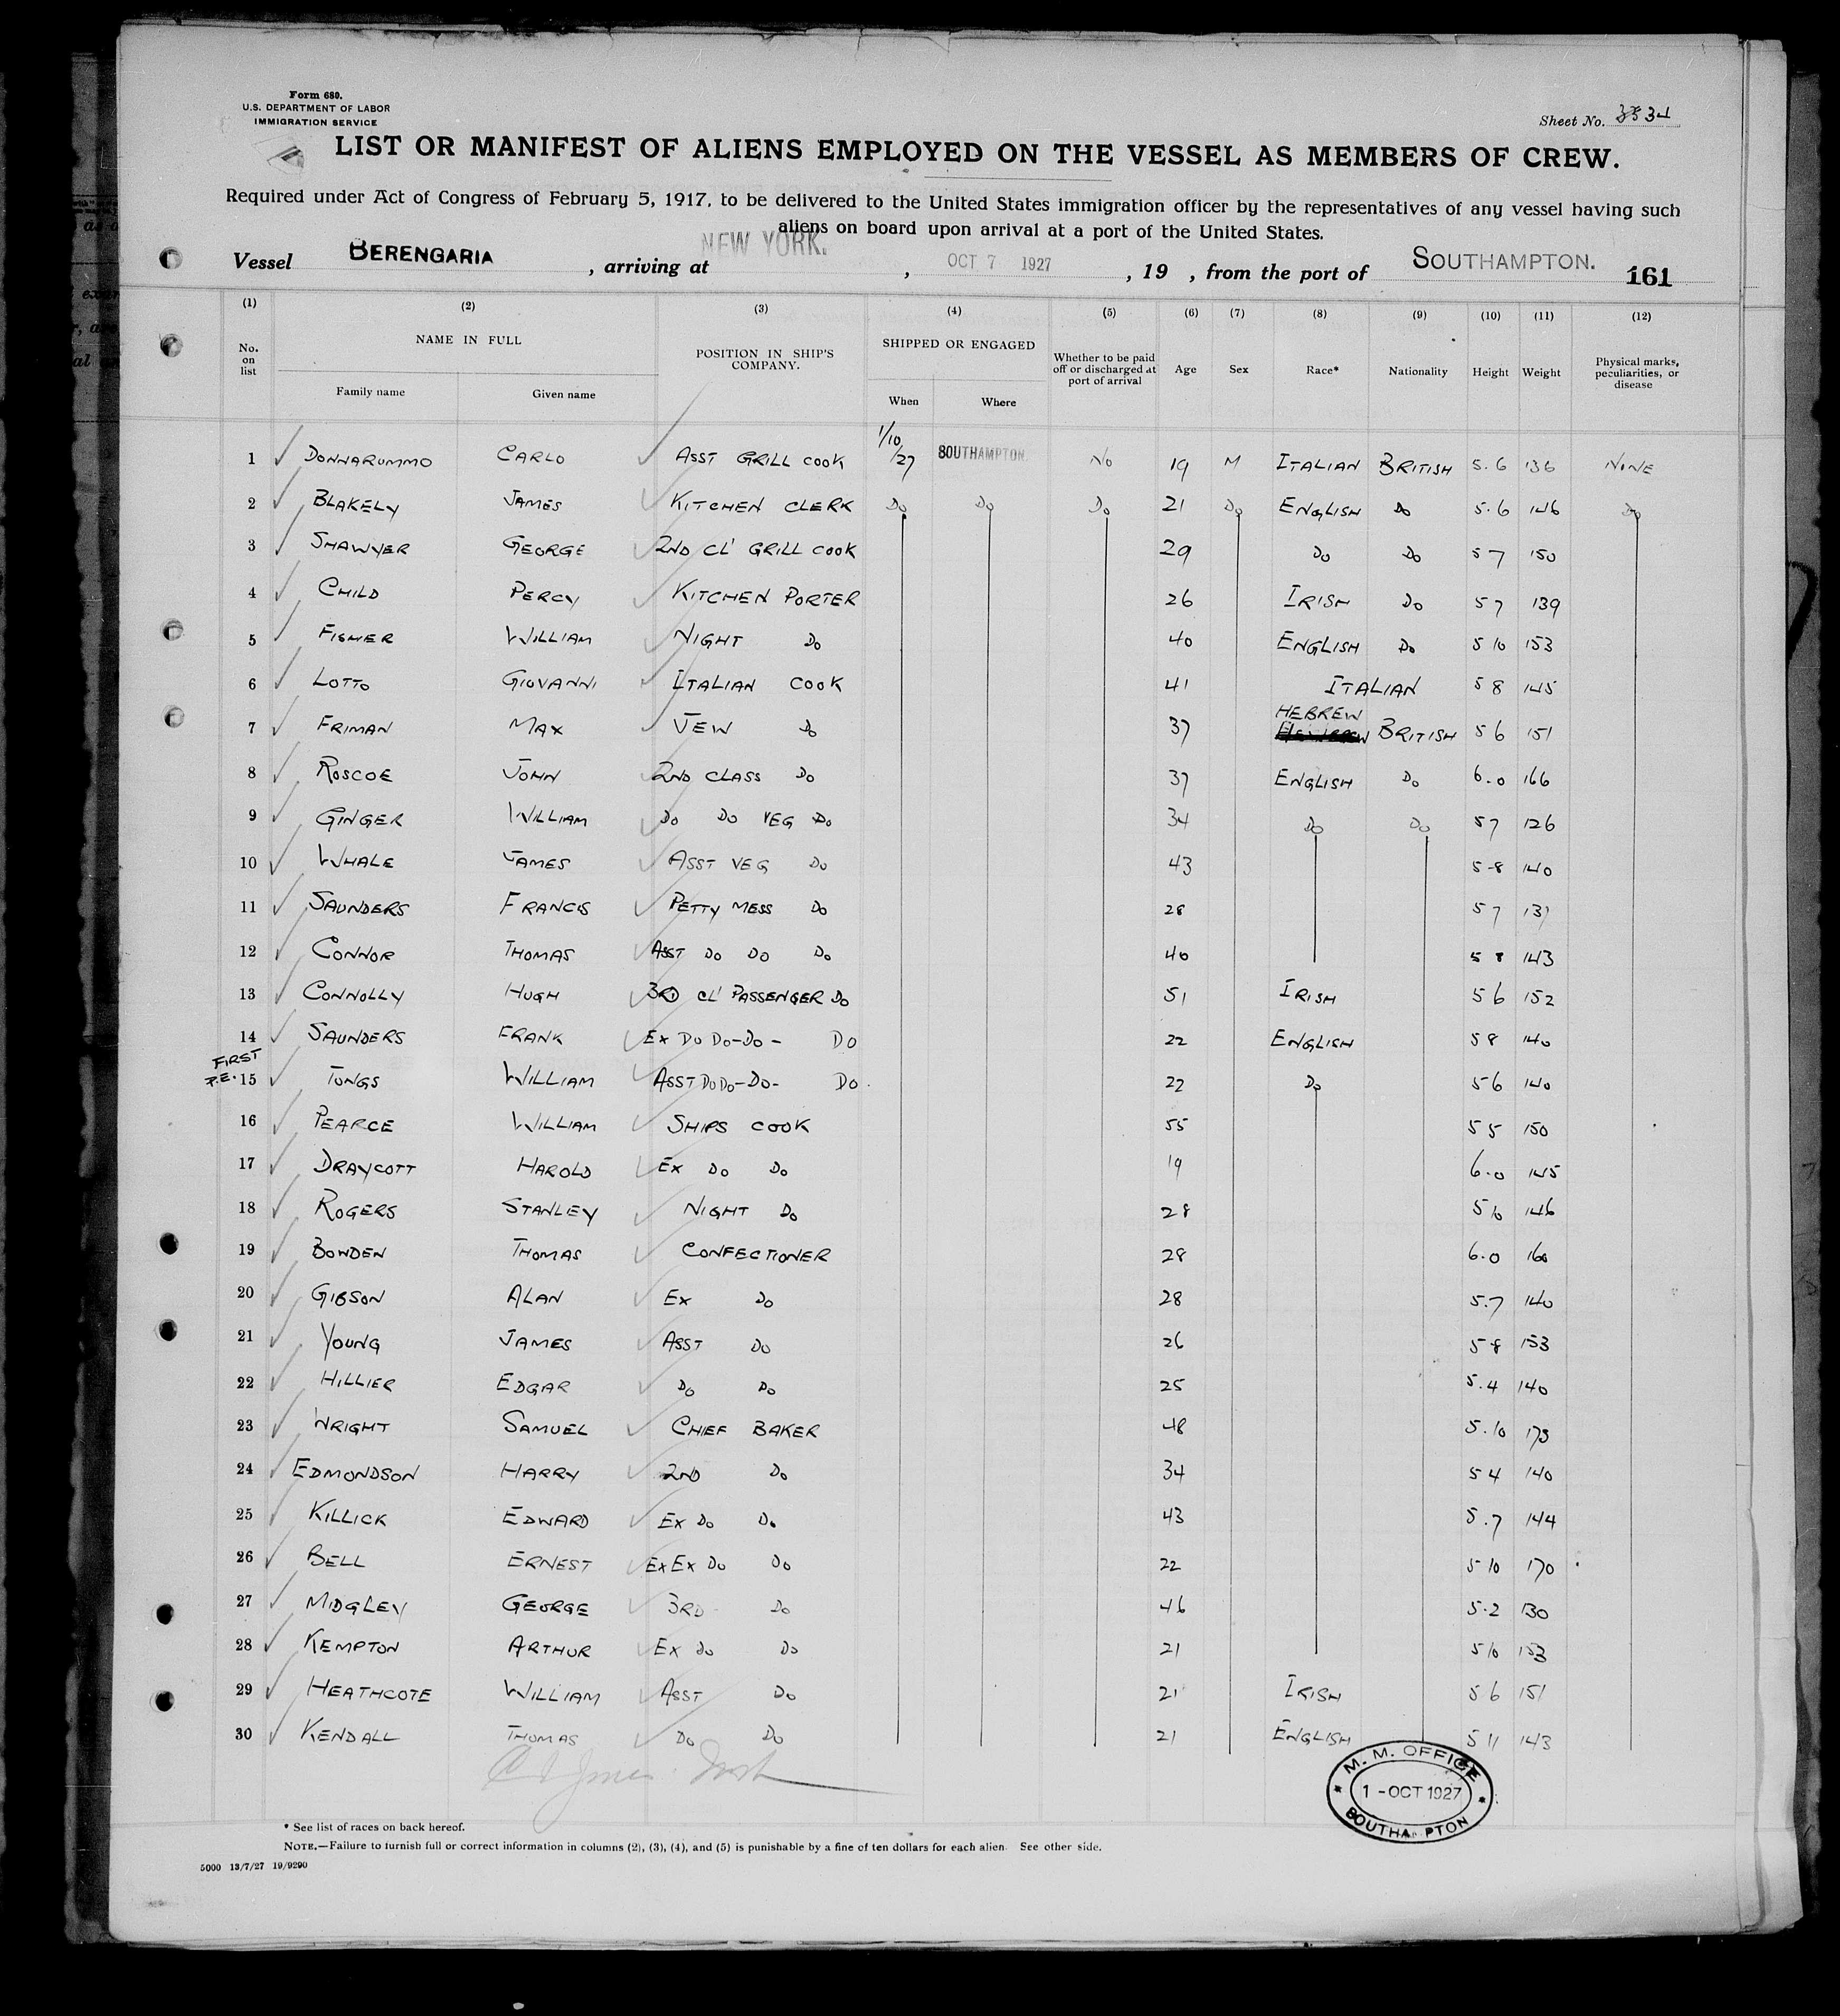 Form 680.
U.S. DEPARTMENT OF LABOR
IMMIGRATION SERVICE
Sheet No. 34
LIST OR MANIFEST OF ALIENS EMPLOYED ON THE VESSEL AS MEMBERS OF CREW.
Required under Act of Congress of February 5, 1917, to be delivered to the United States immigration officer by the representatives of any vessel having such
aliens on board upon arrival at a port of the United States.
Vessel BERENGARIA , arriving at NEW YORK. , OCT 7 1927 , 19 , from the port of SOUTHAMPTON. 161
(1) (2) (3) (4) (5) (6) (7) (8) (9) (10) (11) (12)
No. on list NAME IN FULL Family name Given name POSITION IN SHIP'S COMPANY. SHIPPED OR ENGAGED When Where Whether to be paid off or discharged at port of arrival Age Sex Race* Nationality Height Weight Physical marks, peculiarities, or disease
1 DONNARUMMO CARLO ASST GRILL COOK 1/10/27 SOUTHAMPTON. NO 19 M ITALIAN BRITISH 5.6 136 NONE
2 BLAKELY JAMES KITCHEN CLERK DO DO DO 21 DO ENGLISH DO 5.6 146 DO
3 SHAWYER GEORGE 2ND CL' GRILL COOK 29 DO DO 5 7 150
4 CHILD PERCY KITCHEN PORTER 26 IRISH DO 5 7 139
5 FISHER WILLIAM NIGHT DO 40 ENGLISH DO 5 10 153
6 LOTTO GIOVANNI ITALIAN COOK 41 ITALIAN 5 8 145
7 FRIMAN MAX JEW DO 37 HEBREW BRITISH 5 6 151
8 ROSCOE JOHN 2ND CLASS DO 37 ENGLISH DO 6.0 166
9 GINGER WILLIAM DO DO VEG DO 34 DO DO 5 7 126
10 WHALE JAMES ASST VEG DO 43 5-8 140
11 SAUNDERS FRANCIS PETTY MESS DO 28 5 7 131
12 CONNOR THOMAS ASST DO DO DO 40 5 8 143
13 CONNOLLY HUGH 3RD CL' PASSENGER DO 51 IRISH 5 6 152
14 SAUNDERS FRANK EX DO DO-DO- DO 22 ENGLISH 5 8 140
FIRST
P.E. 15 TONGS WILLIAM ASST DO DO-DO- DO. 22 DO 5 6 140
16 PEARCE WILLIAM SHIPS COOK 55 5 5 150
17 DRAYCOTT HAROLD EX DO DO 19 6.0 145
18 ROGERS STANLEY NIGHT DO 28 5 10 146
19 BOWDEN THOMAS CONFECTIONER 28 6.0 160
20 GIBSON ALAN EX DO 28 5.7 140
21 YOUNG JAMES ASST DO 26 5 8 153
22 HILLIER EDGAR DO DO 25 5.4 140
23 WRIGHT SAMUEL CHIEF BAKER 48 5.10 173
24 EDMONDSON HARRY 2ND DO 34 5 4 140
25 KILLICK EDWARD EX DO DO 43 5.7 144
26 BELL ERNEST EX EX DO DO 22 5 10 170
27 MIDGLEY GEORGE 3RD DO 46 5.2 130
28 KEMPTON ARTHUR EX DO DO 21 5 10 153
29 HEATHCOTE WILLIAM ASST DO 21 IRISH 5 6 151
30 KENDALL THOMAS DO DO 21 ENGLISH 5 11 143
M. M. OFFICE
1 - OCT 1927
SOUTHAMPTON
* See list of races on back hereof.
NOTE.—Failure to furnish full or correct information in columns (2), (3), (4), and (5) is punishable by a fine of ten dollars for each alien. See other side.
5000 13/7/27 19/9290